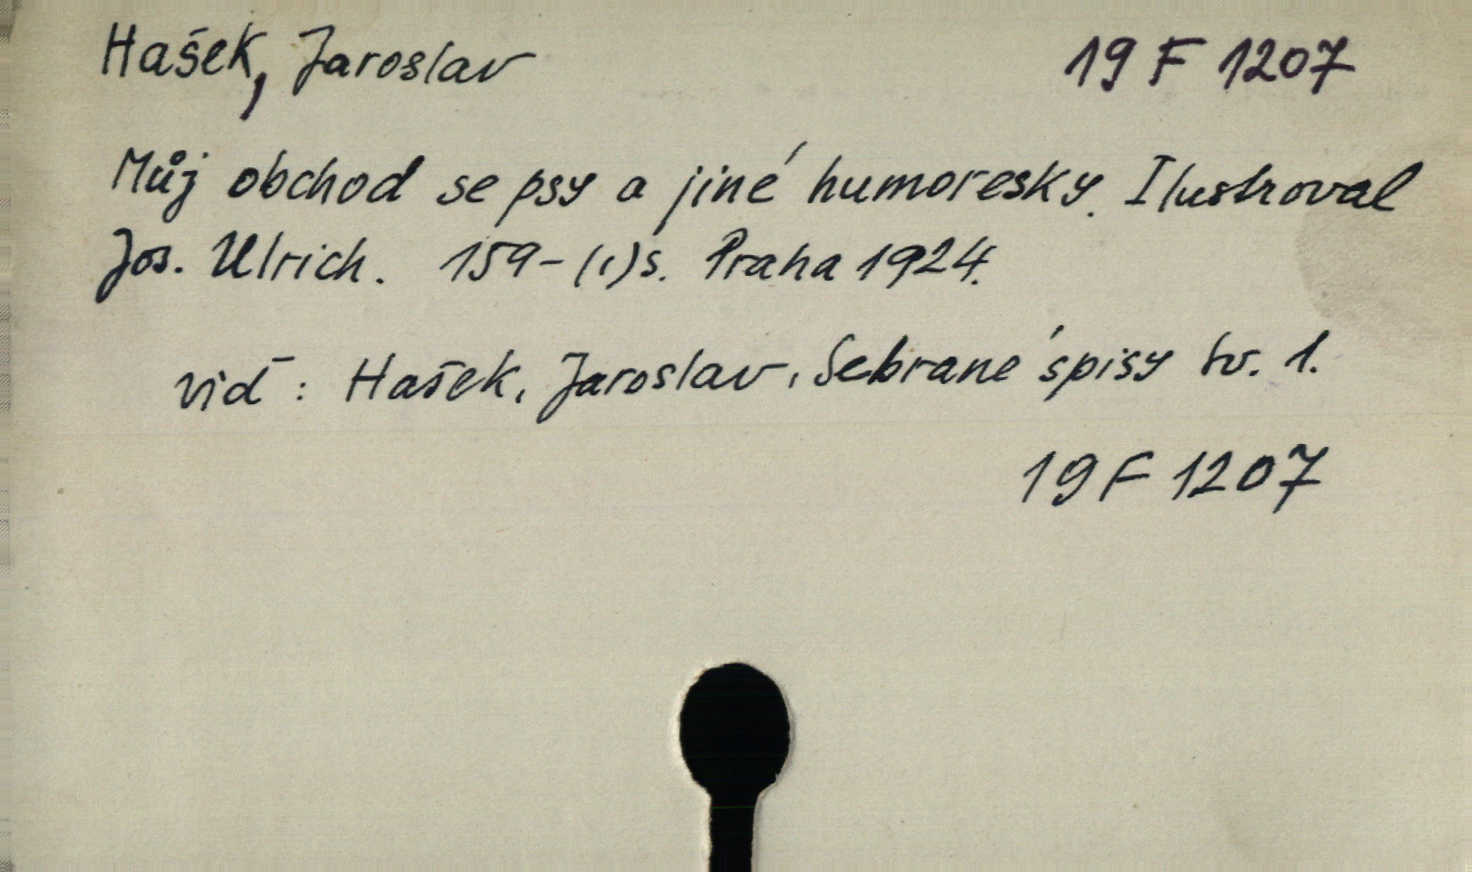 Hašek, Jaroslav 19 F 1207
Můj obchod se psy a jiné humoresky. Ilustroval
Jos. Ulrich. 159-(1)s. Praha 1924.
viď: Hašek, Jaroslav, Sebrané spisy sv. 1.
19 F 1207